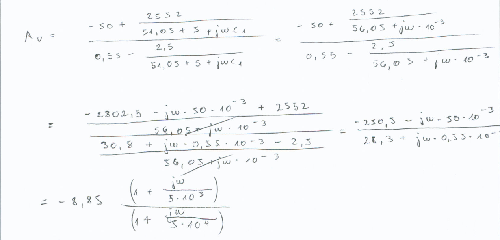 Av = (-50 + 2552/(51,05 + 5 + jwC1)) / (0,55 - 2,5/(51,05 + 5 + jwC1)) = (-50 + 2552/(56,05 + jw·10^-3)) / (0,55 - 2,5/(56,05 + jw·10^-3))
= ((-2802,5 - jw·50·10^-3 + 2552)/(56,05 + jw·10^-3)) / ((30,8 + jw·0,55·10^-3 - 2,5)/(56,05 + jw·10^-3)) = (-250,5 - jw·50·10^-3)/(28,3 + jw·0,55·10^-3)
= -8,85 (1 + jw/(5·10^3)) / (1 + jw/(5·10^4))